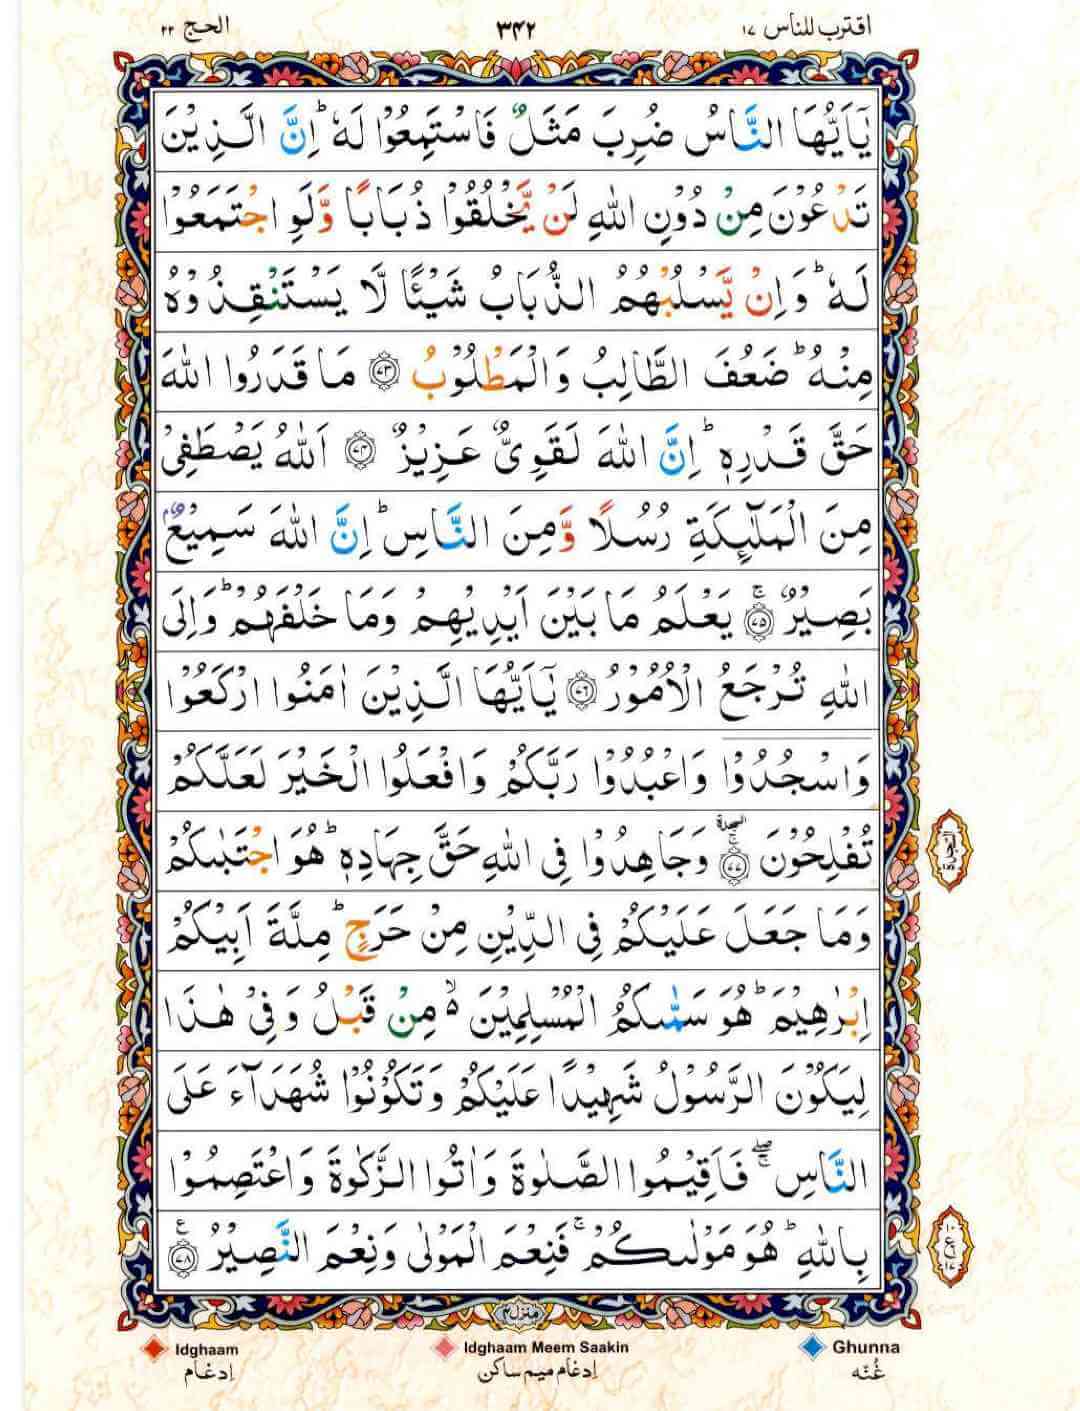 اقترب للناس ۱۷
۳۴۲
الحج ۲۲
يٰۤاَيُّهَا النَّاسُ ضُرِبَ مَثَلٌ فَاسْتَمِعُوْا لَهٗ ؕ اِنَّ الَّذِيْنَ
تَدْعُوْنَ مِنْ دُوْنِ اللّٰهِ لَنْ يَّخْلُقُوْا ذُبَابًا وَّلَوِ اجْتَمَعُوْا
لَهٗ ؕ وَاِنْ يَّسْلُبْهُمُ الذُّبَابُ شَيْـًٔا لَّا يَسْتَنْقِذُوْهُ
مِنْهُ ؕ ضَعُفَ الطَّالِبُ وَالْمَطْلُوْبُ ﴿۷۳﴾ مَا قَدَرُوا اللّٰهَ
حَقَّ قَدْرِهٖ ؕ اِنَّ اللّٰهَ لَقَوِىٌّ عَزِيْزٌ ﴿۷۴﴾ اَللّٰهُ يَصْطَفِىْ
مِنَ الْمَلٰٓٮِٕكَةِ رُسُلًا وَّمِنَ النَّاسِ ؕ اِنَّ اللّٰهَ سَمِيْعٌۢ
بَصِيْرٌ ۚ ﴿۷۵﴾ يَعْلَمُ مَا بَيْنَ اَيْدِيْهِمْ وَمَا خَلْفَهُمْ ؕ وَاِلَى
اللّٰهِ تُرْجَعُ الْاُمُوْرُ ﴿۷۶﴾ يٰۤاَيُّهَا الَّذِيْنَ اٰمَنُوا ارْكَعُوْا
وَاسْجُدُوْا وَاعْبُدُوْا رَبَّكُمْ وَافْعَلُوا الْخَيْرَ لَعَلَّكُمْ
تُفْلِحُوْنَ ۚ ﴿۷۷﴾ السجدة وَجَاهِدُوْا فِى اللّٰهِ حَقَّ جِهَادِهٖ ؕ هُوَ اجْتَبٰٮكُمْ
السجدة
وَمَا جَعَلَ عَلَيْكُمْ فِى الدِّيْنِ مِنْ حَرَجٍ ؕ مِلَّةَ اَبِيْكُمْ
اِبْرٰهِيْمَ ؕ هُوَ سَمّٰٮكُمُ الْمُسْلِمِيْنَ ۙ مِنْ قَبْلُ وَفِىْ هٰذَا
لِيَكُوْنَ الرَّسُوْلُ شَهِيْدًا عَلَيْكُمْ وَتَكُوْنُوْا شُهَدَآءَ عَلَى
النَّاسِ ۖۚ فَاَقِيْمُوا الصَّلٰوةَ وَاٰتُوا الزَّكٰوةَ وَاعْتَصِمُوْا
بِاللّٰهِ ؕ هُوَ مَوْلٰٮكُمْ ۚ فَنِعْمَ الْمَوْلٰى وَنِعْمَ النَّصِيْرُ ﴿۷۸﴾ ع
۱۰
ع
۱۷
منزل ۴
Idghaam
Idghaam Meem Saakin
Ghunna
اِدغام
اِدغام میم ساکن
غُنّه